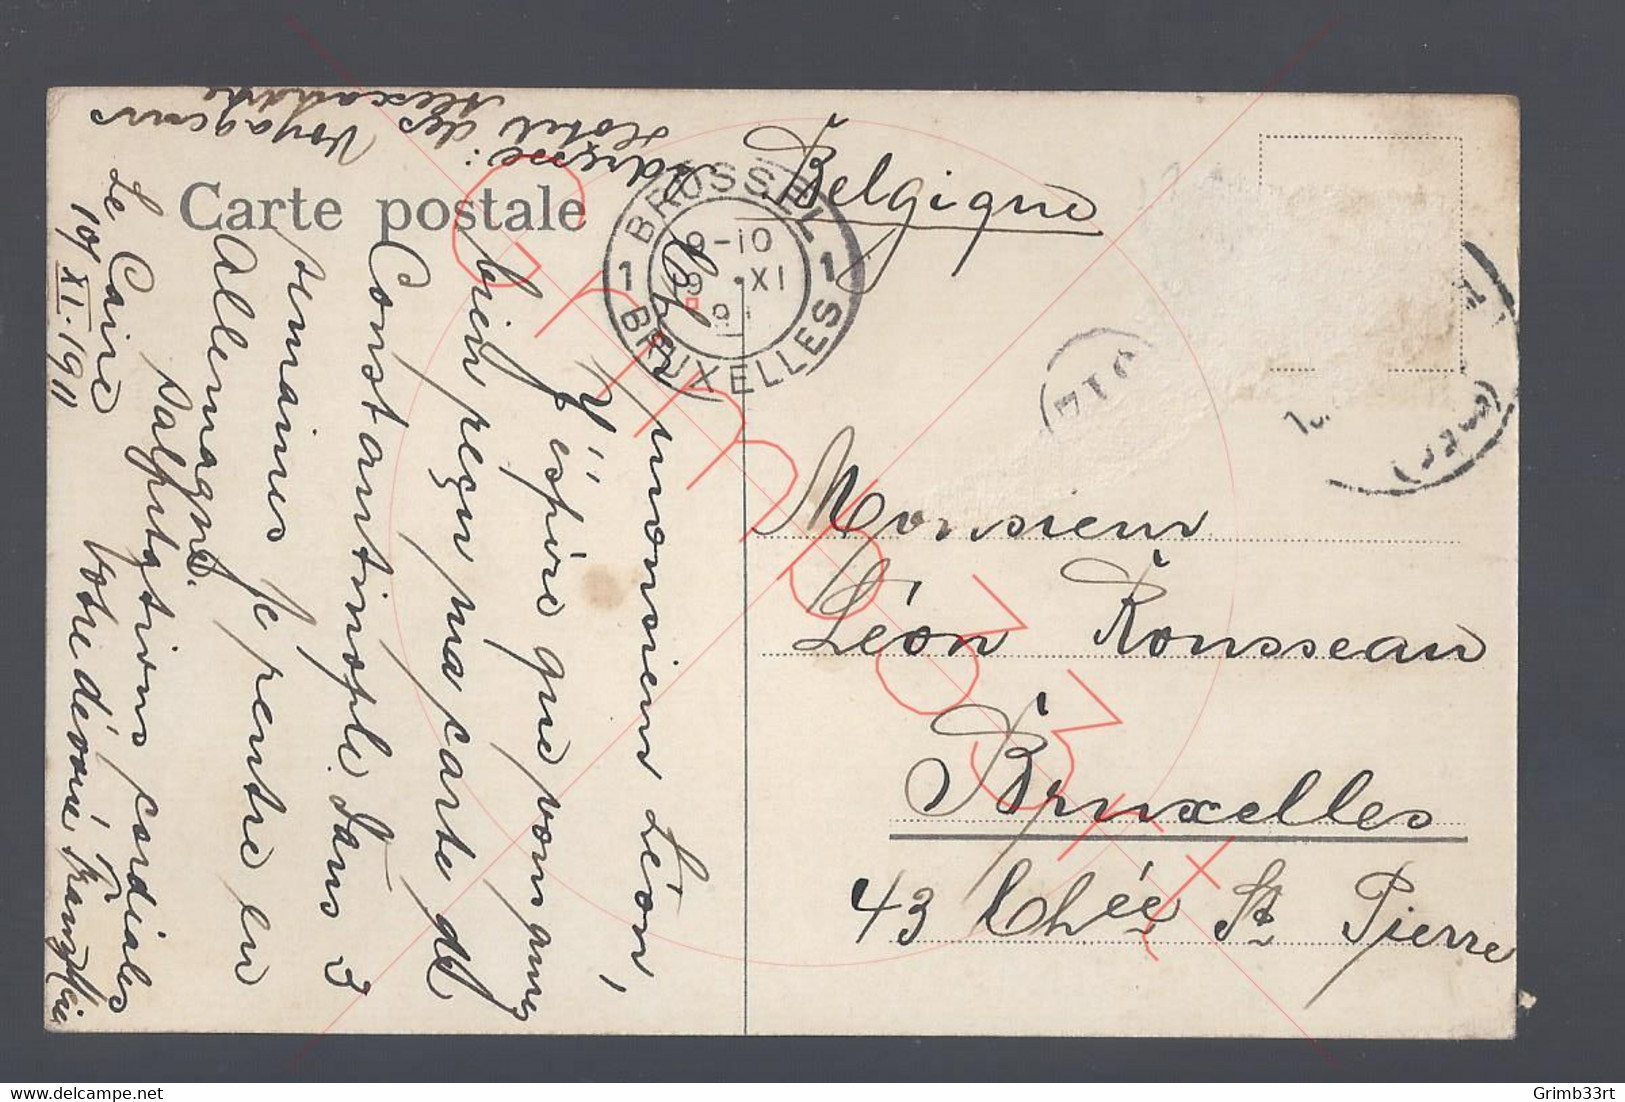 Carte postale
Le Caire
10/XI.1911
Cher monsieur Léon,
J'éspère que vous avez
bien reçu ma carte de
Constantinople. Dans 3
semaines je rentre en
Allemagne.
Salutations cordiales
Votre dévoué Franz
adresse:
Hotel des Voyageurs
Alexandrie
BRUSSEL
1 1
9-10
XI
BRUXELLES
Belgique
Monsieur
Léon Rousseau
Bruxelles
43 Chée St Pierre
Grimb33rt
Grimb33rt